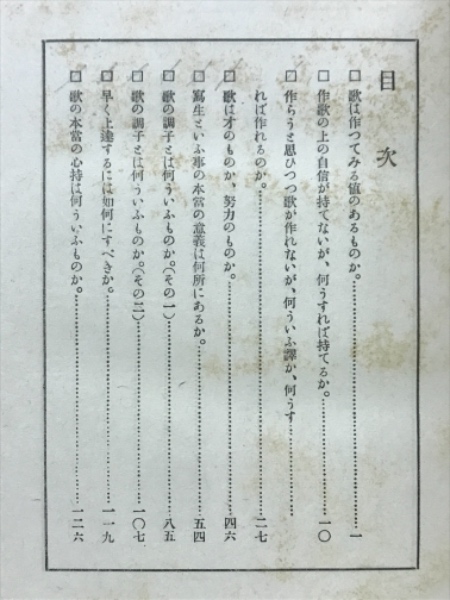 目次
□歌は作つてみる値のあるものか。……一
□作歌の上の自信が持てないが、何うすれば持てるか。……一〇
□作らうと思ひつつ歌が作れないが、何ういふ譯か、何うす……
れば作れるのか。……二七
□歌は才のものか、努力のものか。……四六
□寫生といふ事の本當の意義は何所にあるか。……五四
□歌の調子とは何ういふものか。(その一)……八五
□歌の調子とは何ういふものか。(その二)……一〇七
□早く上達するには如何にすべきか。……一一九
□歌の本當の心持は何ういふものか。……一二六